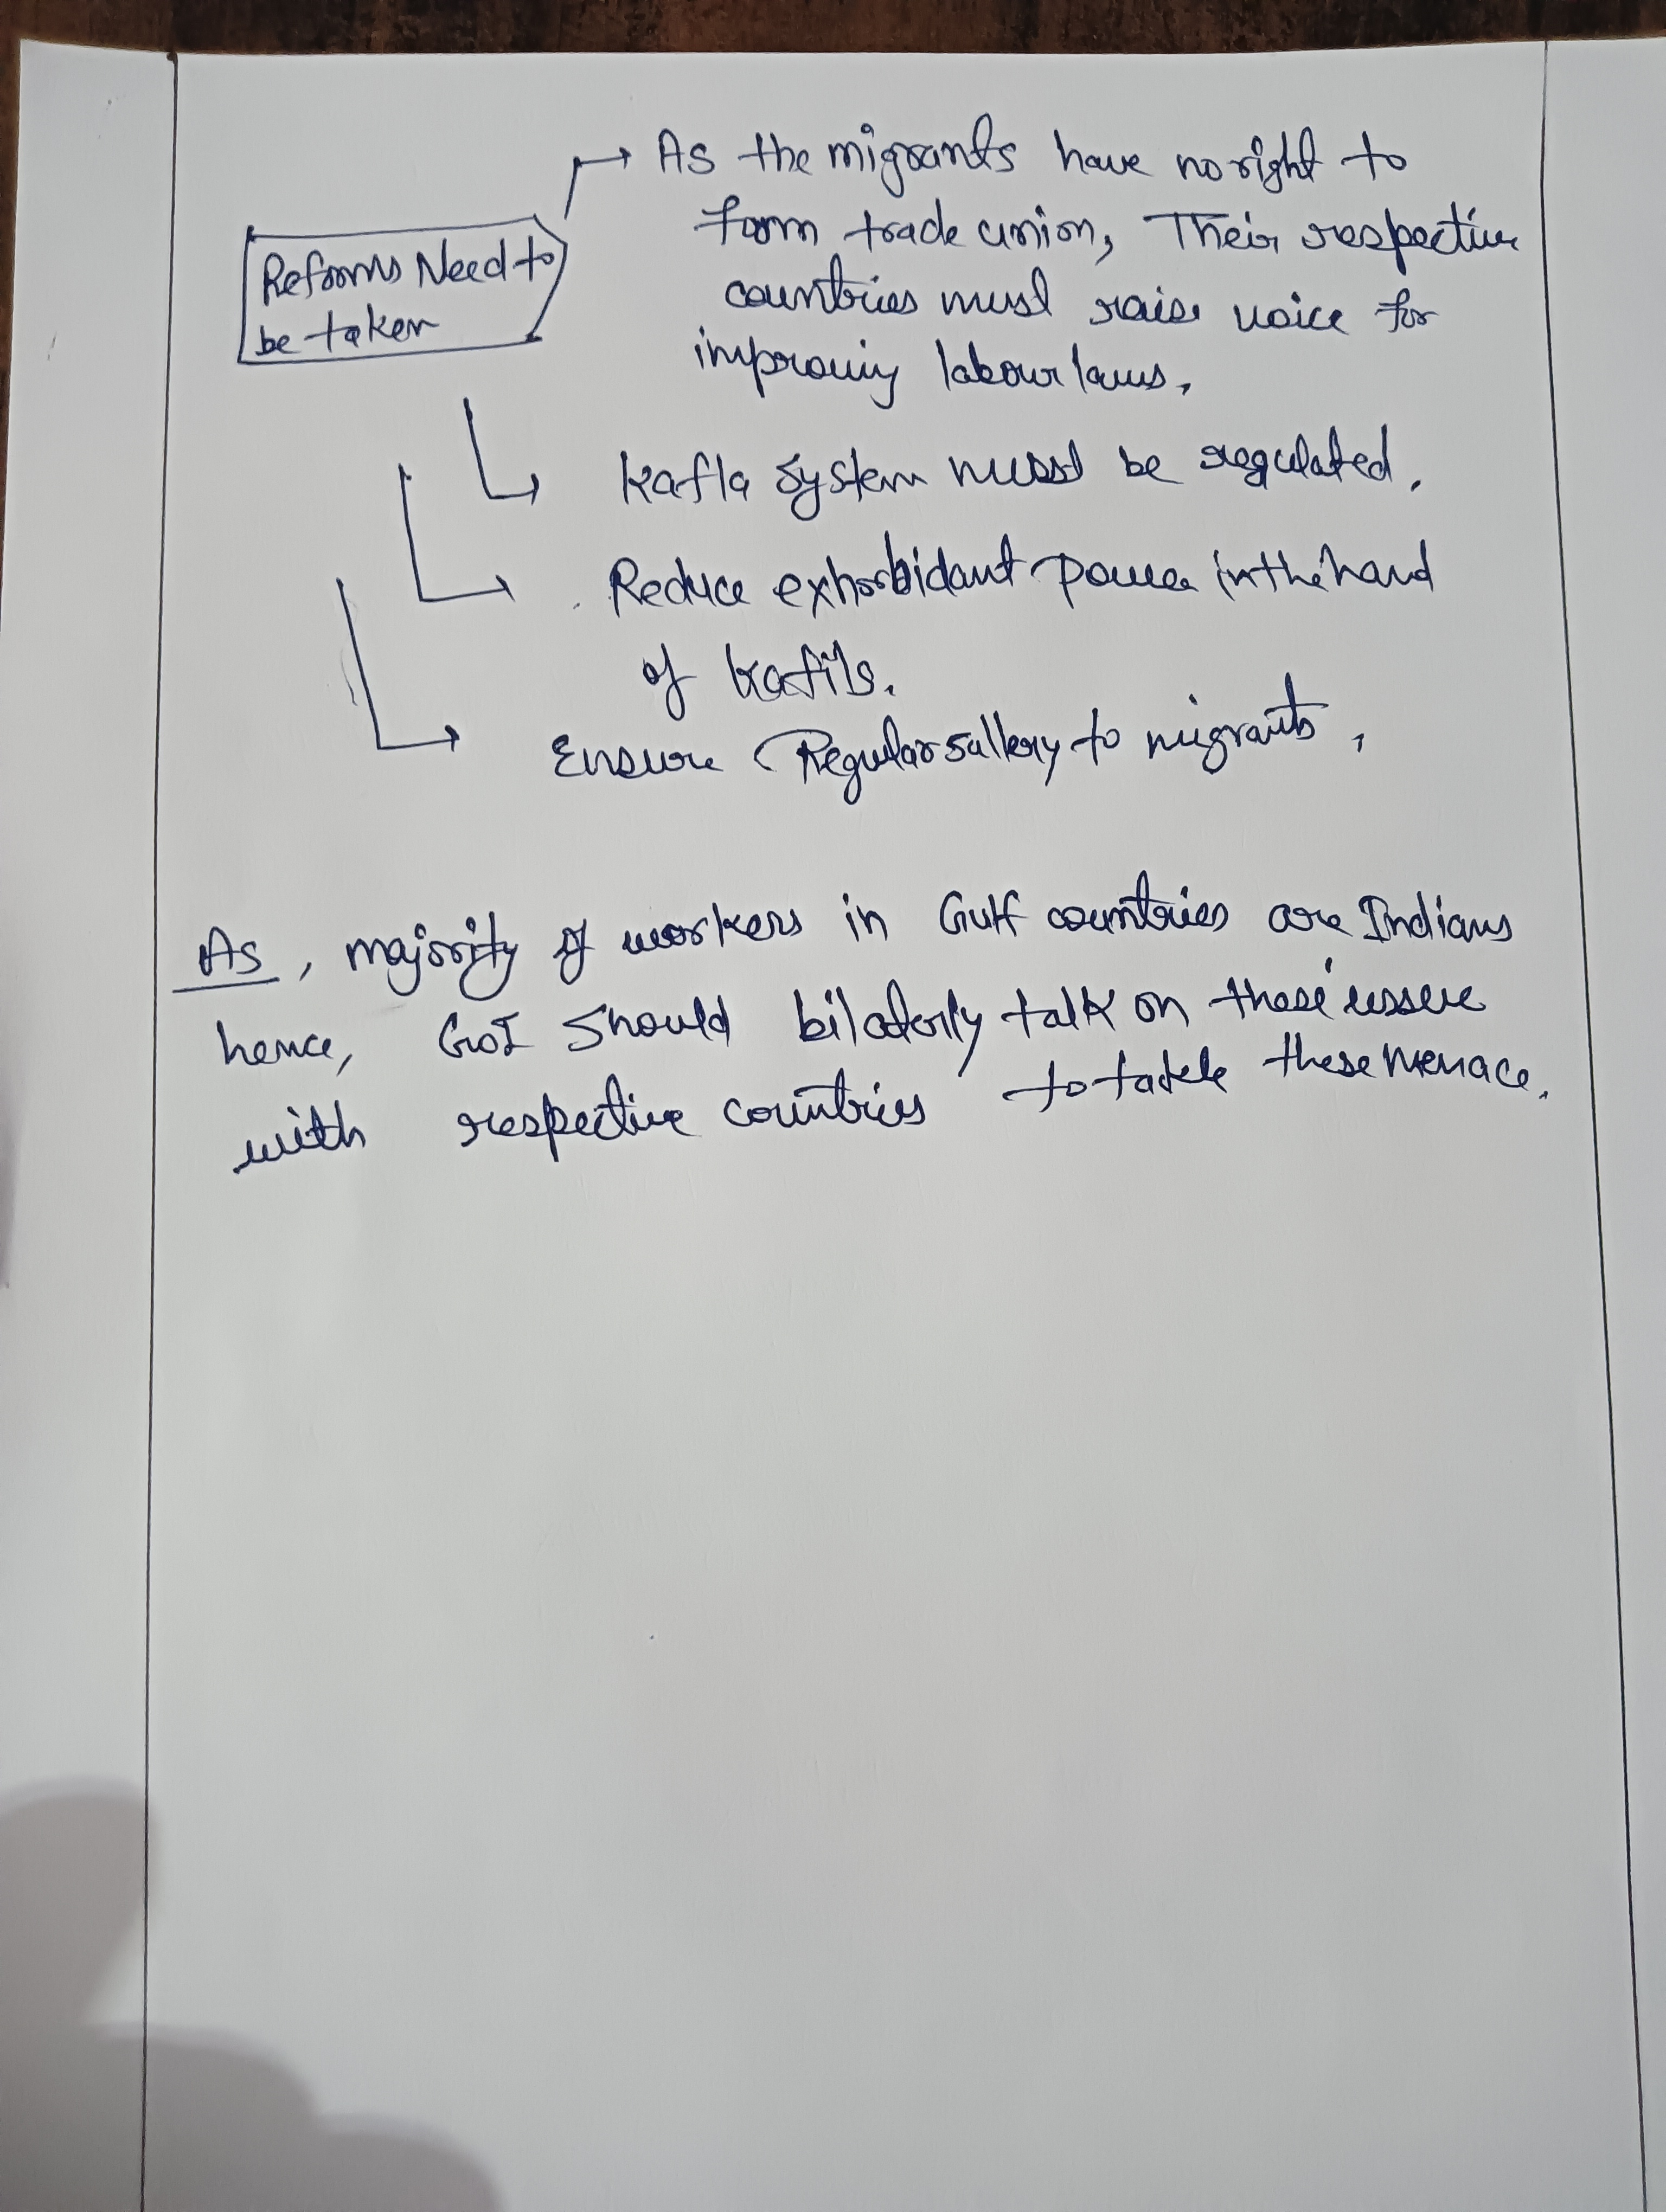 As the migrants have no right to
form trade union, Their respective
countries must raise voice for
improving labour laws,
Reforms Need to
be taken
Kafla system must be regulated.
Reduce exhorbidant power in the hand
of kafils.
Ensure Regular sallery to migrants,
As, majority of workers in Gulf countries are Indians
hence, GoI should bilaterly talk on these issue
with respective countries to tackle these menace.